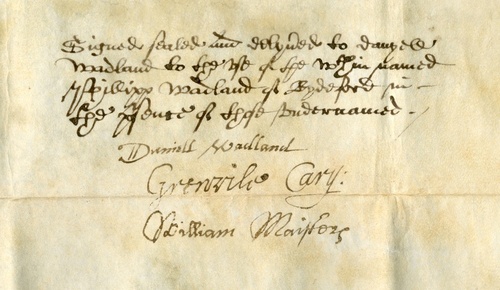 Signed sealed and delyũed to Daniell
Wadland to the vse of the wthin named
Phillipp Wadland of Bydeford in
the psence of those vndernamed.
Daniell Wadland
Grenvile Cary:
William Maisters